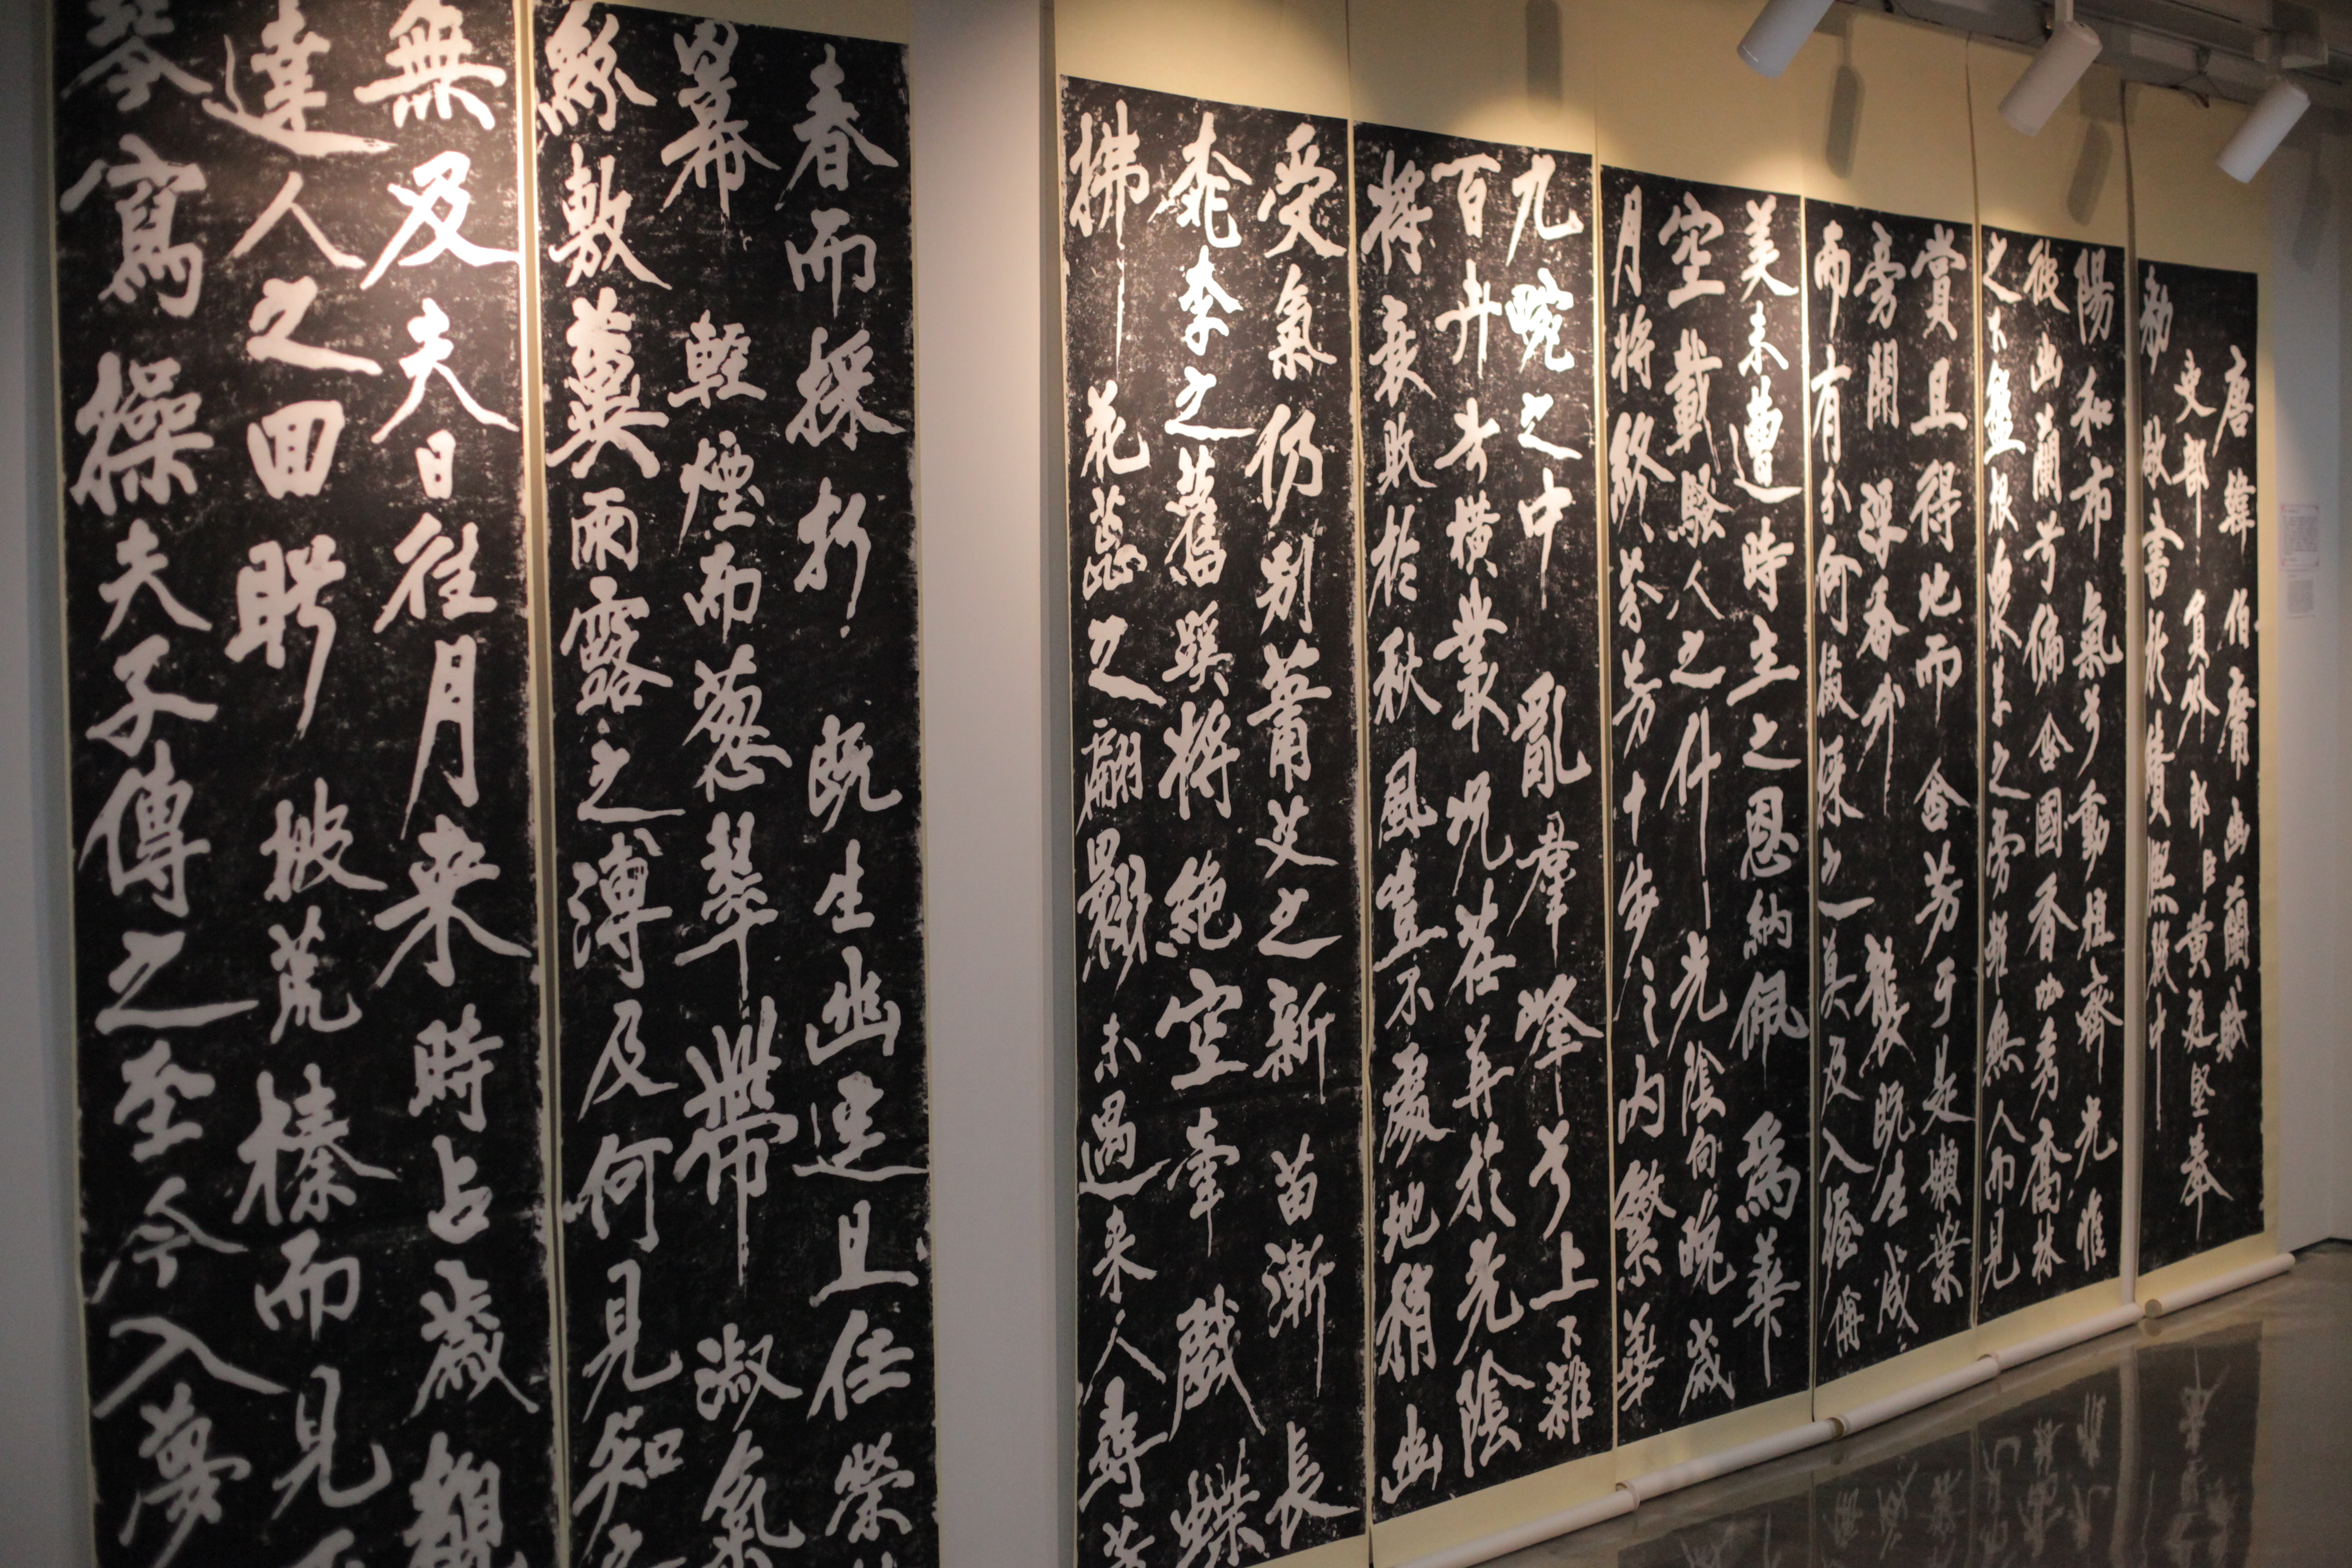 唐韓伯庸幽蘭賦
吏部員外郎臣黃庭堅奉
勅敬書於績熙殿中
陽和布氣兮動植齊光惟
彼幽蘭兮偏含國香吐秀喬林
之下盤根衆草之旁雖無人而見
賞且得地而含芳于是嫩葉
旁開浮香外襲既生成
而有分何採之莫及入握稱
美未遭時主之恩納佩爲華
空載騷人之什光陰向晚歲
月將終芬芳十步之內繁華
九畹之中亂羣峰兮上下雜
百卉橫叢況荏苒於光陰
將衰敗於秋風豈不處地稍幽
受氣仍別蕭艾之新苗漸長
桃李之舊蹊將絕空牽戲蝶
拂花蕊之翩翾未遇來人尋芳
春而採折既生幽逕且任榮
冪輕煙而葱翠帶淑氣
紛敷冀雨露之溥及何見知之
無及夫日往月來時占歲觀
達人之回眄披荒榛而見
琴寫操夫子傳之至今入夢